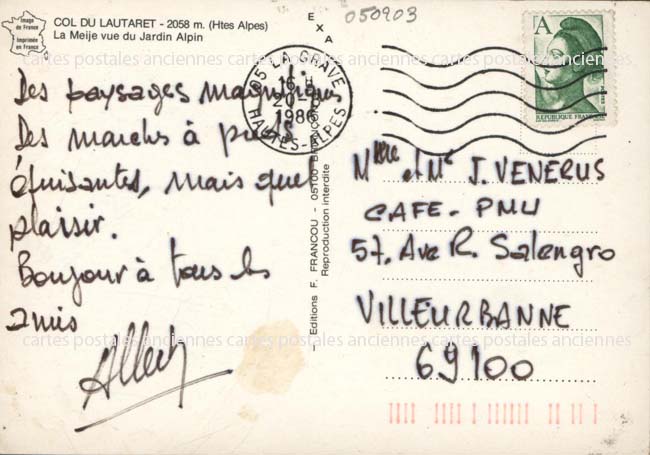 Image de France
Imprimée en France
COL DU LAUTARET - 2058 m. (Htes Alpes)
La Meije vue du Jardin Alpin
EXA
050903
Des paysages magnifiques
Des marches à pieds
épuisantes, mais quel
plaisir.
Bonjour à tous les
amis
05 LA GRAVE
16 H
20-8
1986
HAUTES-ALPES
Editions F. FRANCOU - 05100 BRIANCON
Reproduction interdite
A
REPUBLIQUE FRANÇAISE
Mme et Mr J. VENERUS
CAFE - PMU
57, Ave R. Salengro
VILLEURBANNE
69100
cartes postales anciennes cartes postales anciennes cartes postales anciennes